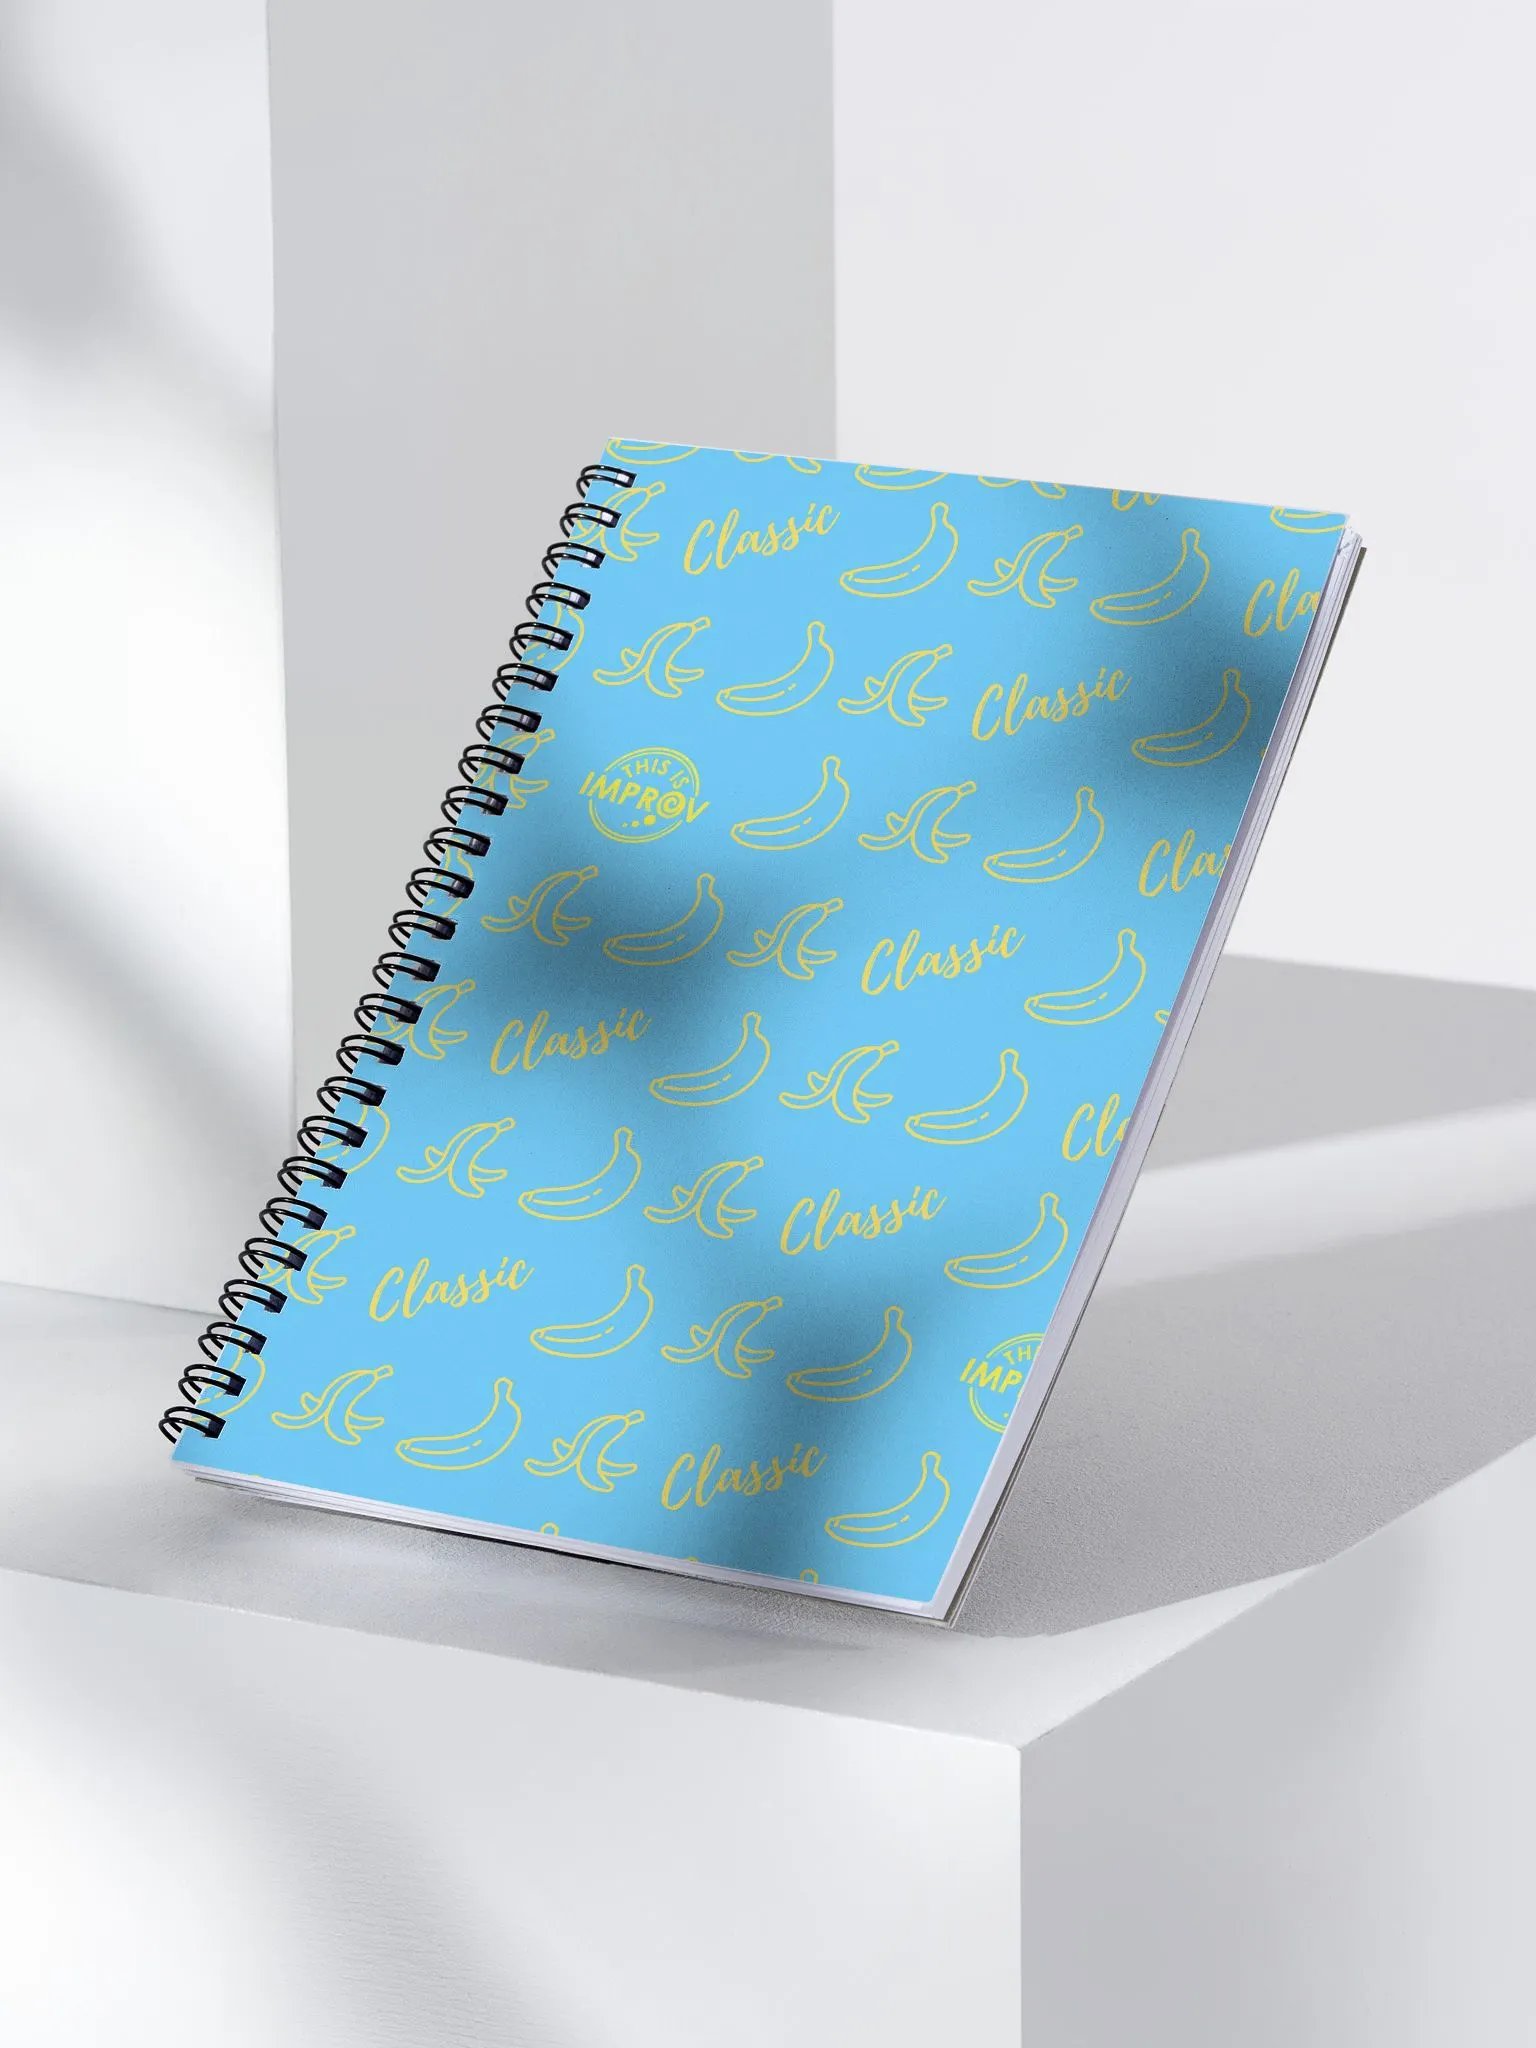 Cl
Classic
Cla
Classic
THIS IS
IMPROV
Clas
Classic
Classic
Cl
Classic
Classic
TH
IMP
Classic